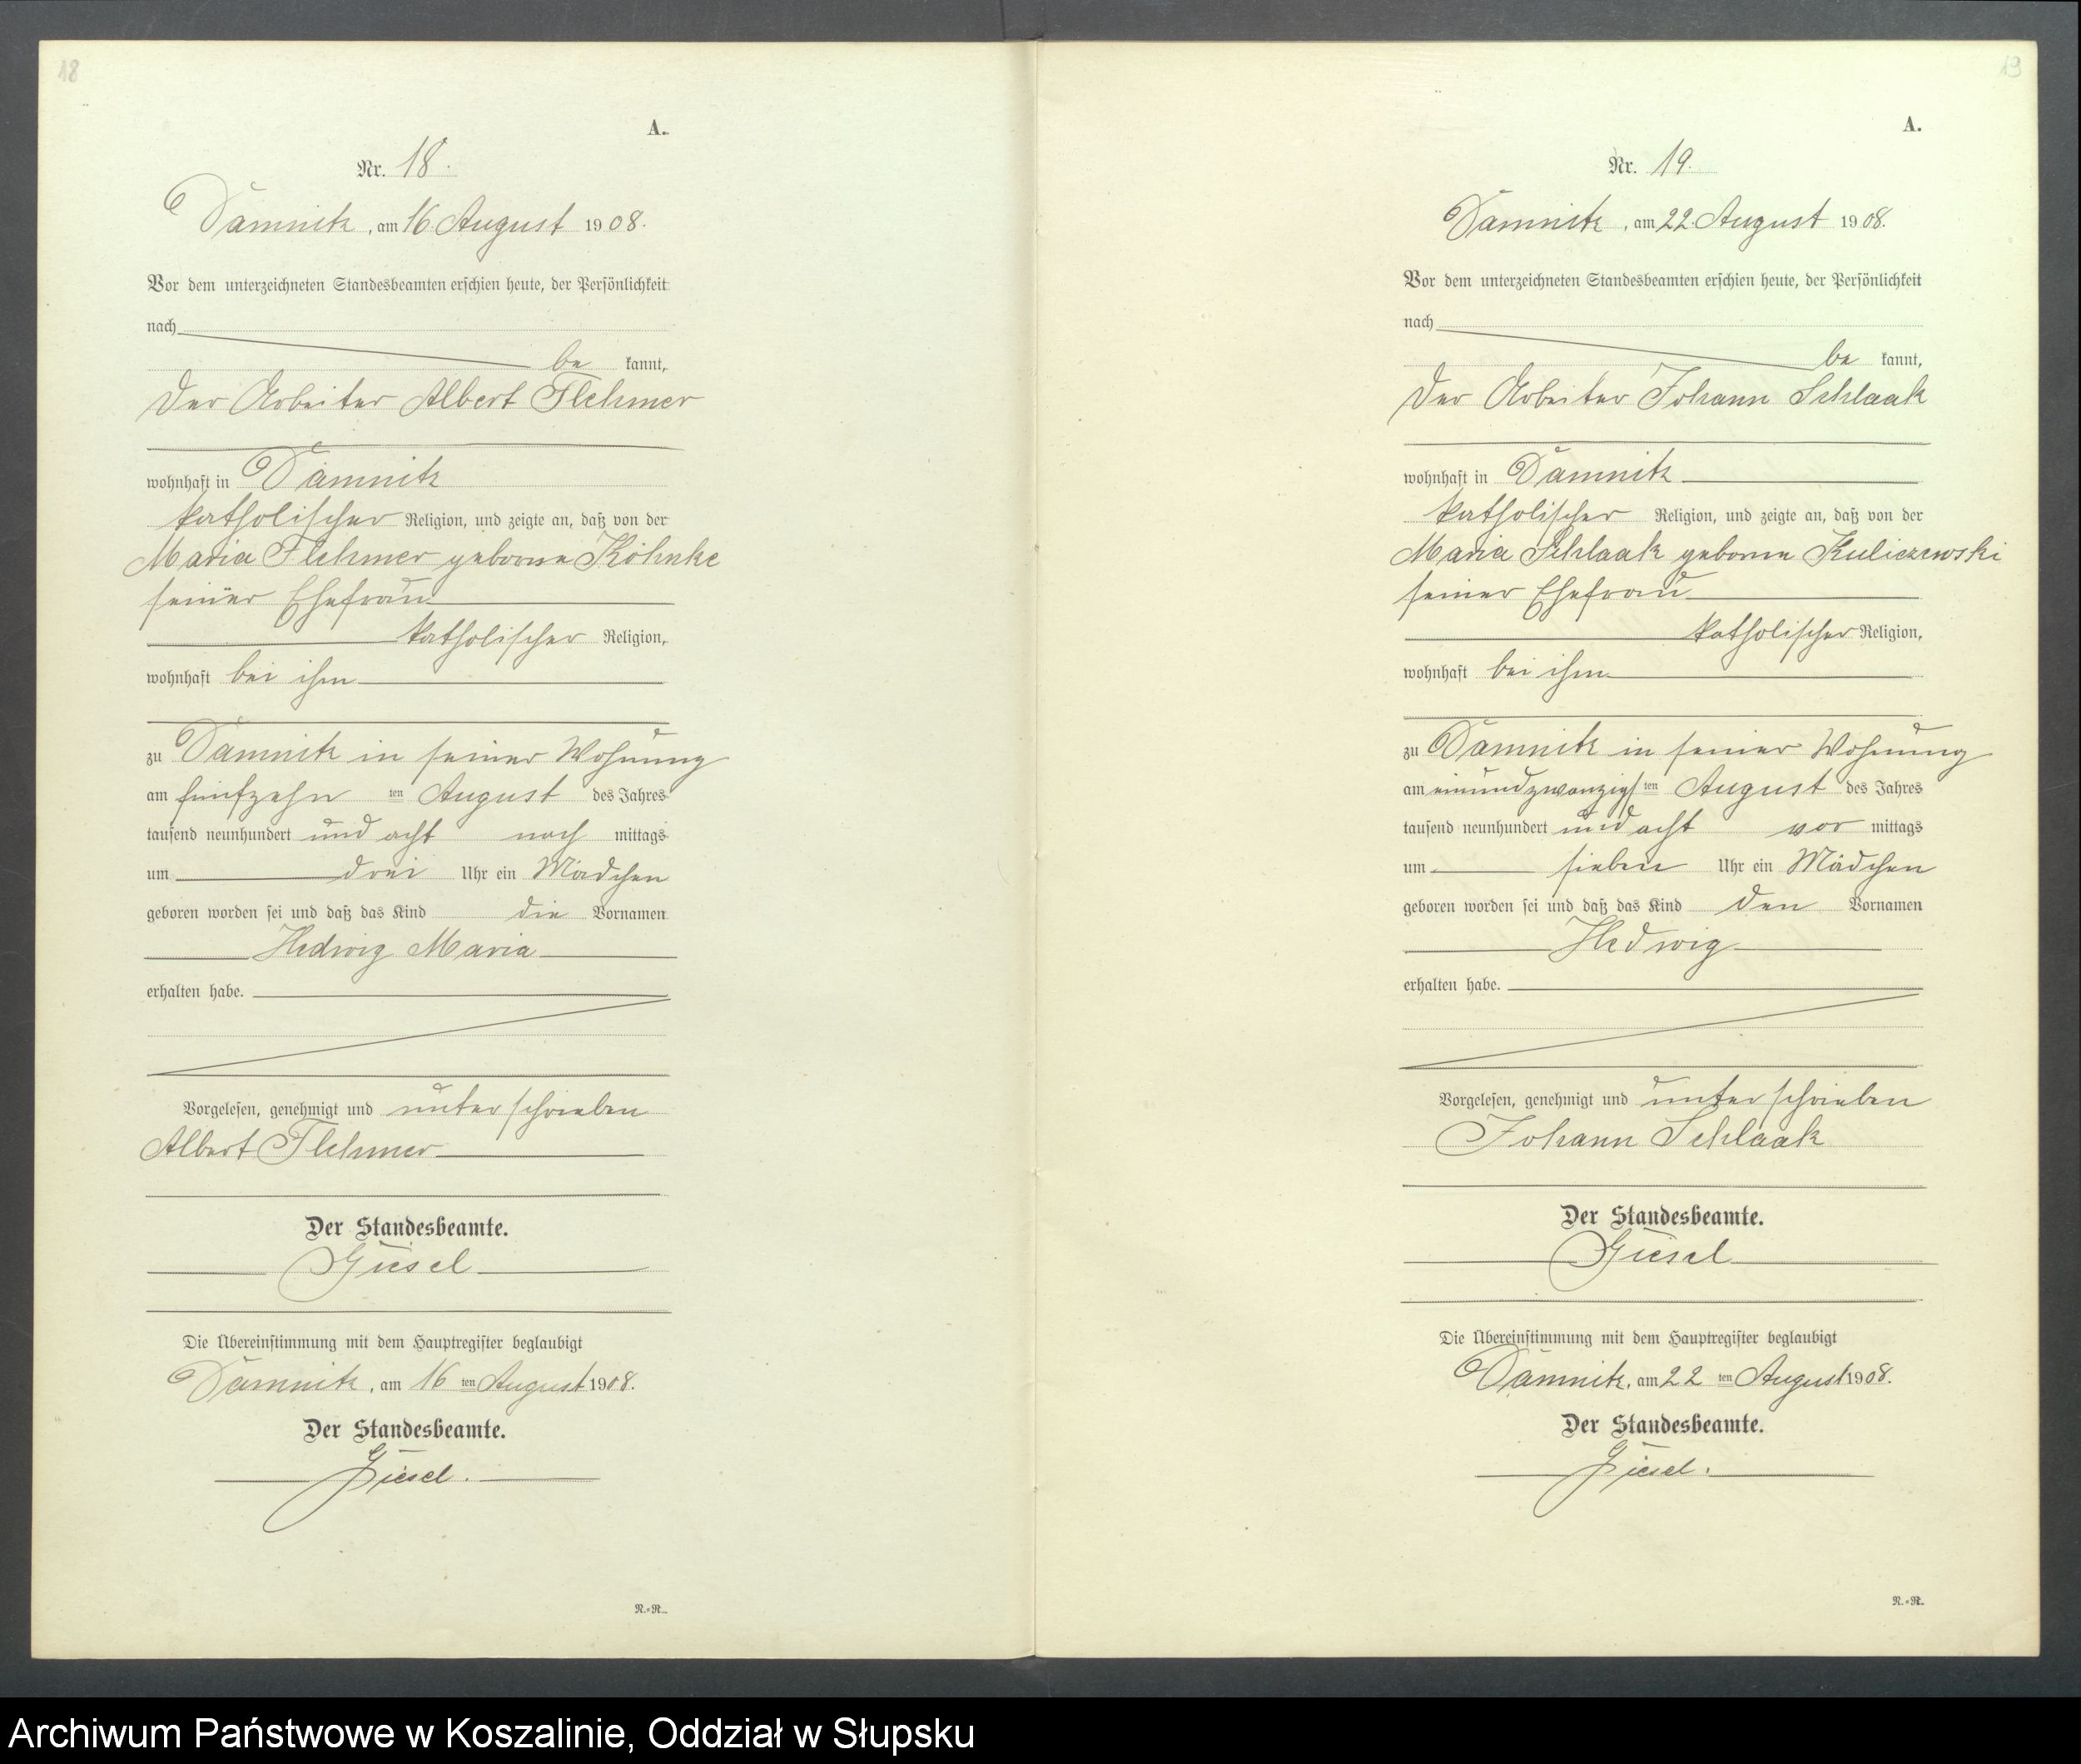 18
A.
Nr. 18.
Damnitz, am 16 August 1908.
Vor dem unterzeichneten Standesbeamten erschien heute, der Persönlichkeit
nach
be kannt,
der Arbeiter Albert Flehmer
wohnhaft in Damnitz
katholischer Religion, und zeigte an, daß von der
Maria Flehmer geborne Köhnke
seiner Ehefrau
katholischer Religion,
wohnhaft bei ihm
zu Damnitz in seiner Wohnung
am fünfzehn ten August des Jahres
tausend neunhundert und acht nach mittags
um drei Uhr ein Mädchen
geboren worden sei und daß das Kind die Vornamen
Hedwig Maria
erhalten habe.
Vorgelesen, genehmigt und unterschrieben
Albert Flehmer
Der Standesbeamte.
Giesel
Die Übereinstimmung mit dem Hauptregister beglaubigt
Damnitz, am 16 ten August 1908.
Der Standesbeamte.
Giesel.
N.=R.
19
A.
Nr. 19.
Damnitz, am 22. August 1908.
Vor dem unterzeichneten Standesbeamten erschien heute, der Persönlichkeit
nach
be kannt,
der Arbeiter Johann Schlaak
wohnhaft in Damnitz
katholischer Religion, und zeigte an, daß von der
Maria Schlaak geborne Kuliczewski
seiner Ehefrau
katholischer Religion,
wohnhaft bei ihm
zu Damnitz in seiner Wohnung
am einundzwanzigs ten August des Jahres
tausend neunhundert und acht vor mittags
um sieben Uhr ein Mädchen
geboren worden sei und daß das Kind den Vornamen
Hedwig
erhalten habe.
Vorgelesen, genehmigt und unterschrieben
Johann Schlaak
Der Standesbeamte.
Giesel
Die Übereinstimmung mit dem Hauptregister beglaubigt
Damnitz, am 22 ten August 1908.
Der Standesbeamte.
Giesel.
N.=R.
Archiwum Państwowe w Koszalinie, Oddział w Słupsku